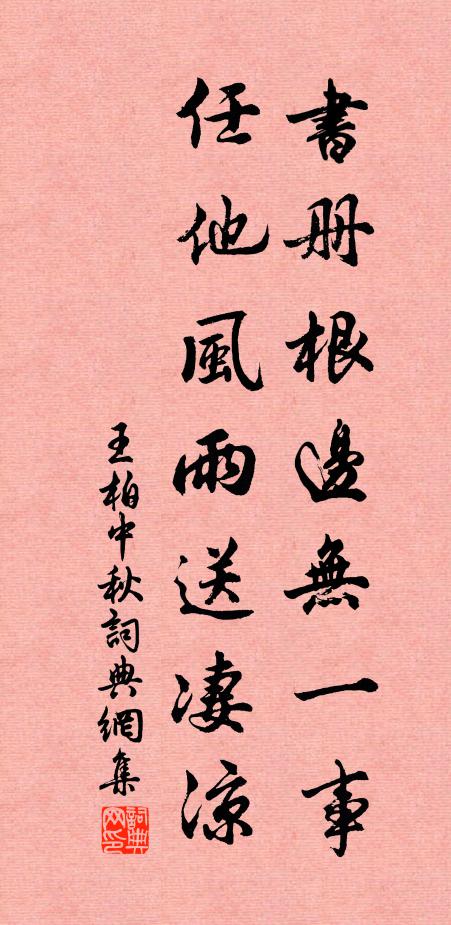 書册根邊無一事
任他風雨送淒涼
王柏中秋詞典網集
詞典网印